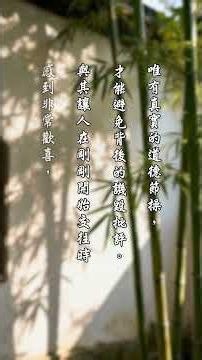 唯有真實的道德節操，
才能避免背後的譏毀批評。
與其讓人在剛剛開始交往時
感到非常歡喜，